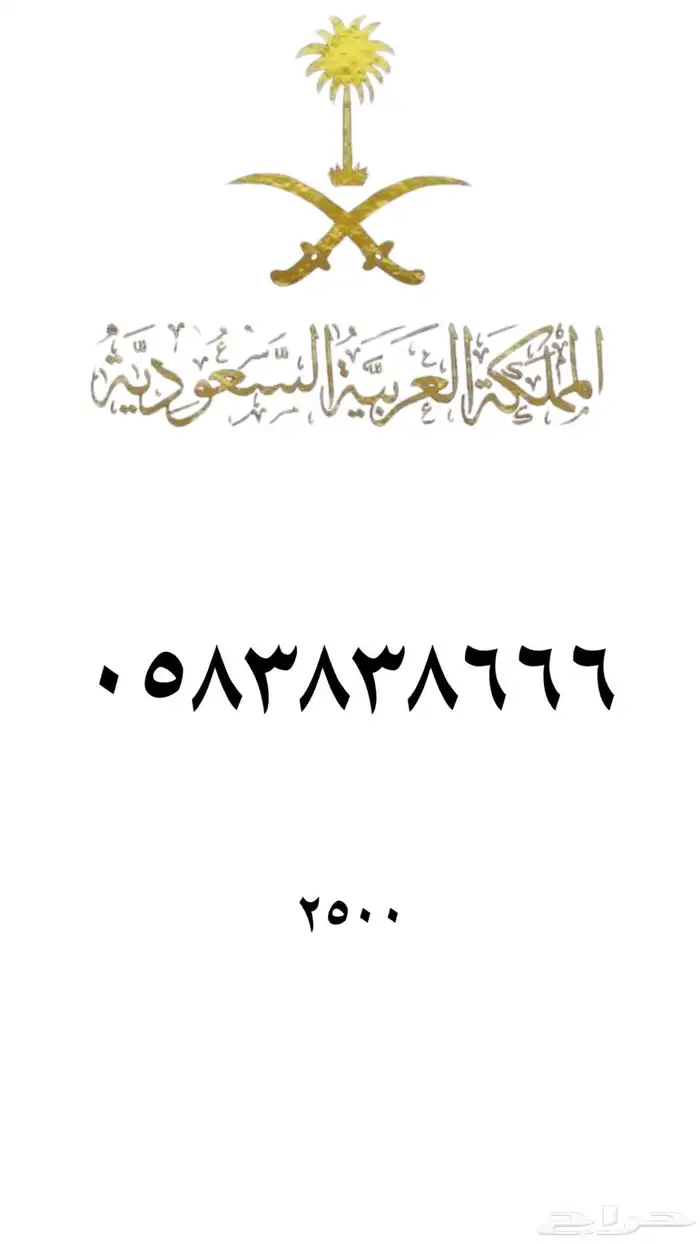 المملكة العربية السعودية
٠٥٨٣٨٣٨٦٦٦
٢٥٠٠
حراج